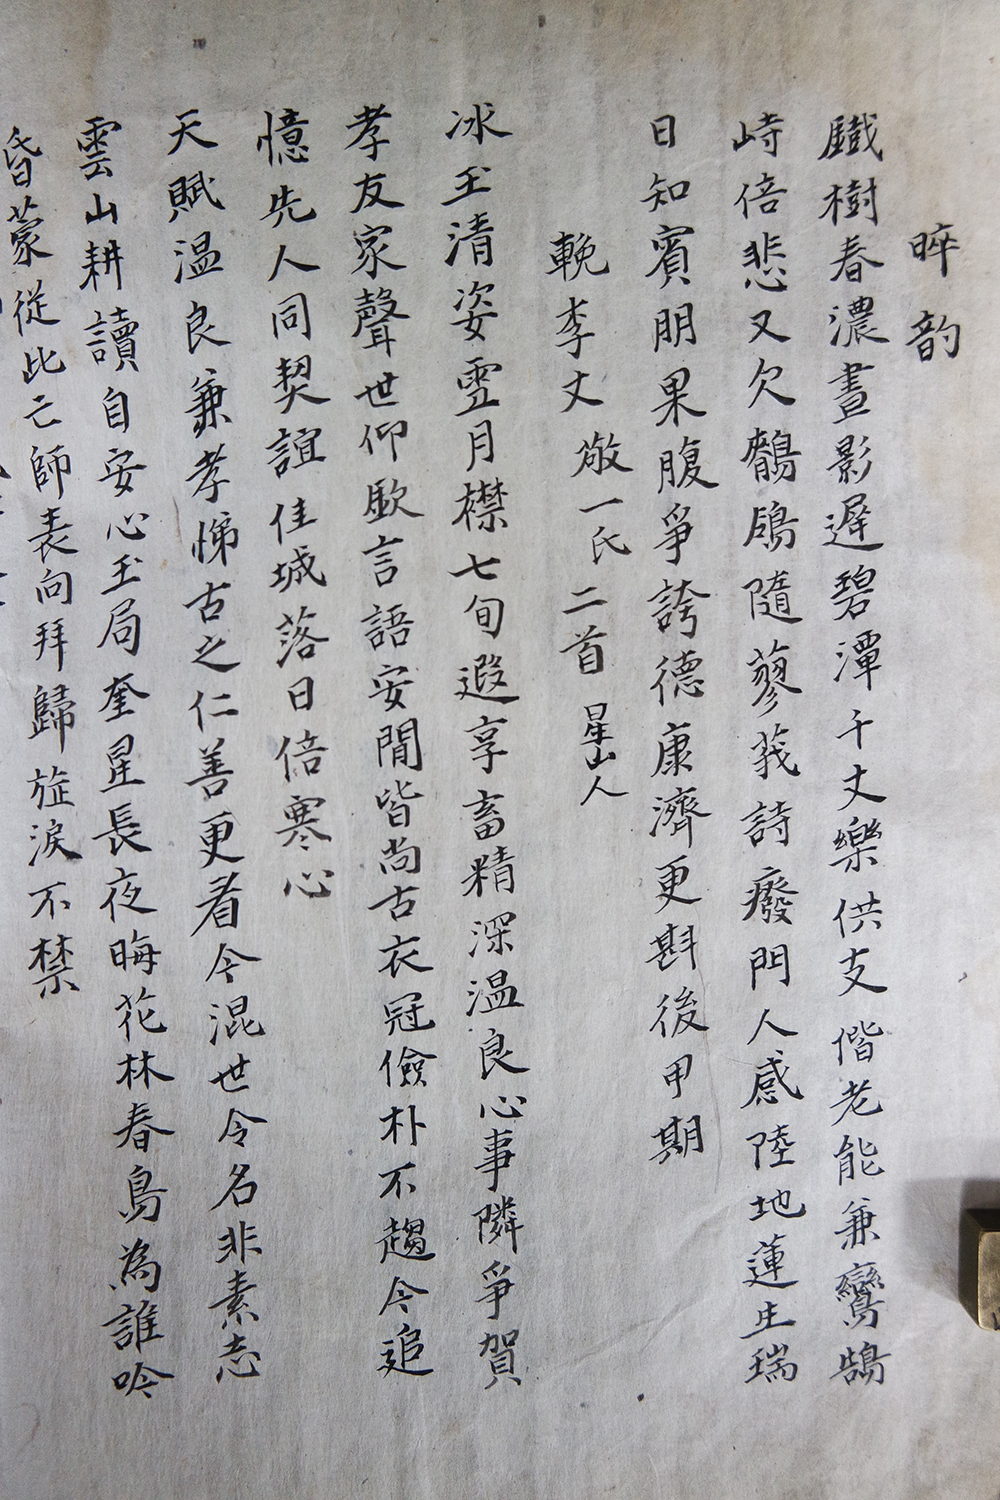 晬韵
鐵樹春濃晝影遲碧潭千丈樂供支偕老能兼鸞鵠
峙倍悲又欠鶺鴒隨蓼莪詩癈門人感陸地蓮生瑞
日知賓朋果腹爭誇德康濟更斟後甲期
輓李丈敬一氏二首星山人
冰玉清姿雪月襟七旬遐享畜精深温良心事隣爭賀
孝友家聲世仰歆言語安閒皆尚古衣冠儉朴不趨今追
憶先人同契誼佳城落日倍寒心
天賦温良兼孝悌古之仁善更看今混世令名非素志
雲山耕讀自安心玉局奎星長夜晦花林春鳥為誰吟
昏蒙從此亡師表向拜歸旋淚不禁